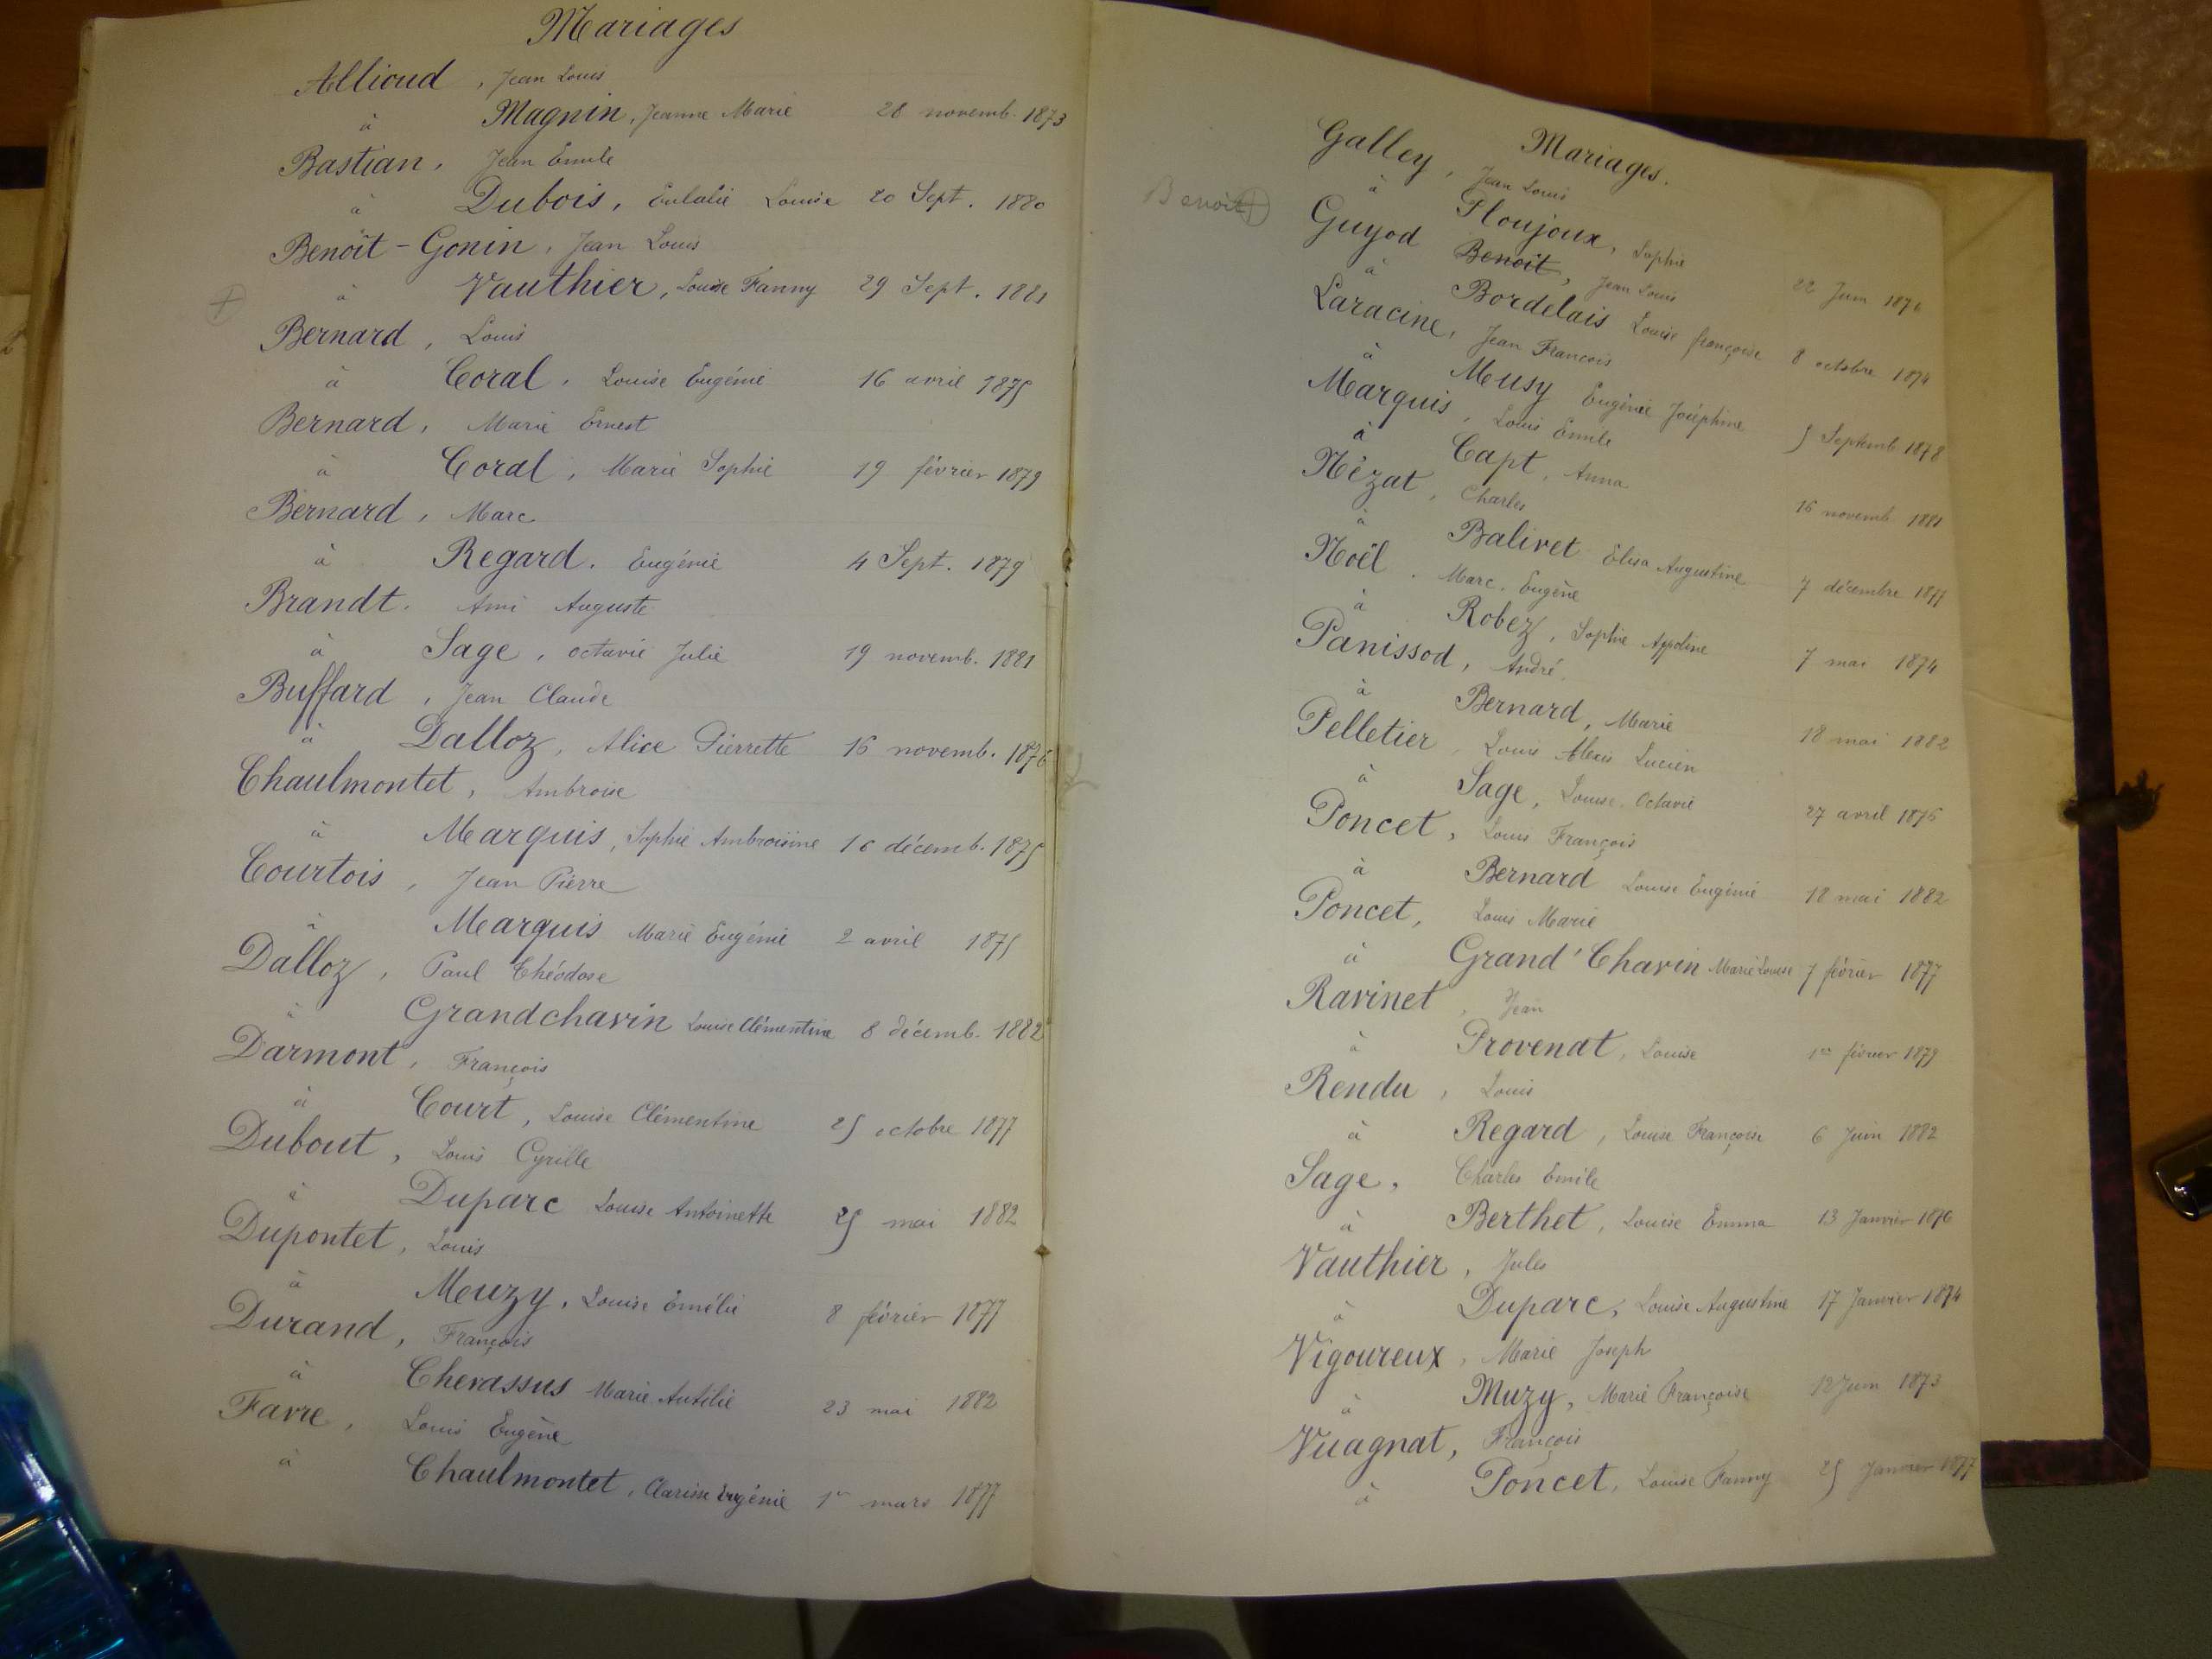 Mariages
Allioud, Jean Louis
à Magnin, Jeanne Marie 28 novemb. 1873
Bastian, Jean Emile
à Dubois, Eulalie Louise 20 Sept. 1880
Benoît-Gonin, Jean Louis
à Vauthier, Louise Fanny 29 Sept. 1881
Bernard, Louis
à Coral, Louise Eugénie 16 avril 1875
Bernard, Marie Ernest
à Coral, Marie Sophie 19 février 1879
Bernard, Marc
à Regard. Eugénie 4 Sept. 1879
Brandt. Ami Auguste
à Sage, octavie Julie 19 novemb. 1881
Buffard, Jean Claude
à Dalloz, Alice Pierrette 16 novemb. 1876
Chaulmontet, Ambroise
à Marquis, Sophie Ambroisine 16 décemb. 1875
Courtois, Jean Pierre
à Marquis Marie Eugénie 2 avril 1875
Dalloz, Paul Théodose
à Grandchavin Louise Clémentine 8 décemb. 1882
Darmont, François
à Court, Louise Clémentine 25 octobre 1877
Dubout, Louis Cyrille
à Duparc Louise Antoinette 25 mai 1882
Dupontet, Louis
à Meuzy, Louise Emélie 8 février 1877
Durand, François
à Chevassus Marie 23 mai 1882
Favre, Louis Eugène
à Chaulmontet, Clarisse Eugénie 1er mars 1877
Mariages.
Galley, Jean Louis
à Ploujoux, Sophie 22 Juin 1876
Benoit
Guyod Benoit, Jean Louis
à Bordelais Louise françoise 8 octobre 1874
Laracine, Jean François
à Meusy Eugénie Joséphine 5 Septemb. 1878
Marquis, Louis Emile
à Capt, Anna 16 novemb. 1881
Nézat, Charles
à Balivet Elisa Augustine 7 décembre 1877
Noël. Marc. Eugène
à Robez, Sophie Appoline 7 mai 1874
Panissod, André.
à Bernard, Marie 18 mai 1882
Pelletier, Louis Alexis Lucien
à Sage, Louise. Octavie 27 avril 1876
Poncet, Louis François
à Bernard Louise Eugénie 18 mai 1882
Poncet, Louis Marie
à Grand'Chavin Marie Louise 7 février 1877
Ravinet, Jean
à Provenat, Louise 1er février 1879
Rendu, Louis
à Regard, Louise Françoise 6 Juin 1882
Sage, Charles Emile
à Berthet, Louise Emma 13 Janvier 1876
Vauthier, Jules
à Duparc, Louise Augustine 17 Janvier 1874
Vigoureux, Marie Joseph
à Muzy, Marie Françoise 12 Juin 1873
Vuagnat, François
à Poncet, Louise Fanny 25 Janvier 1877